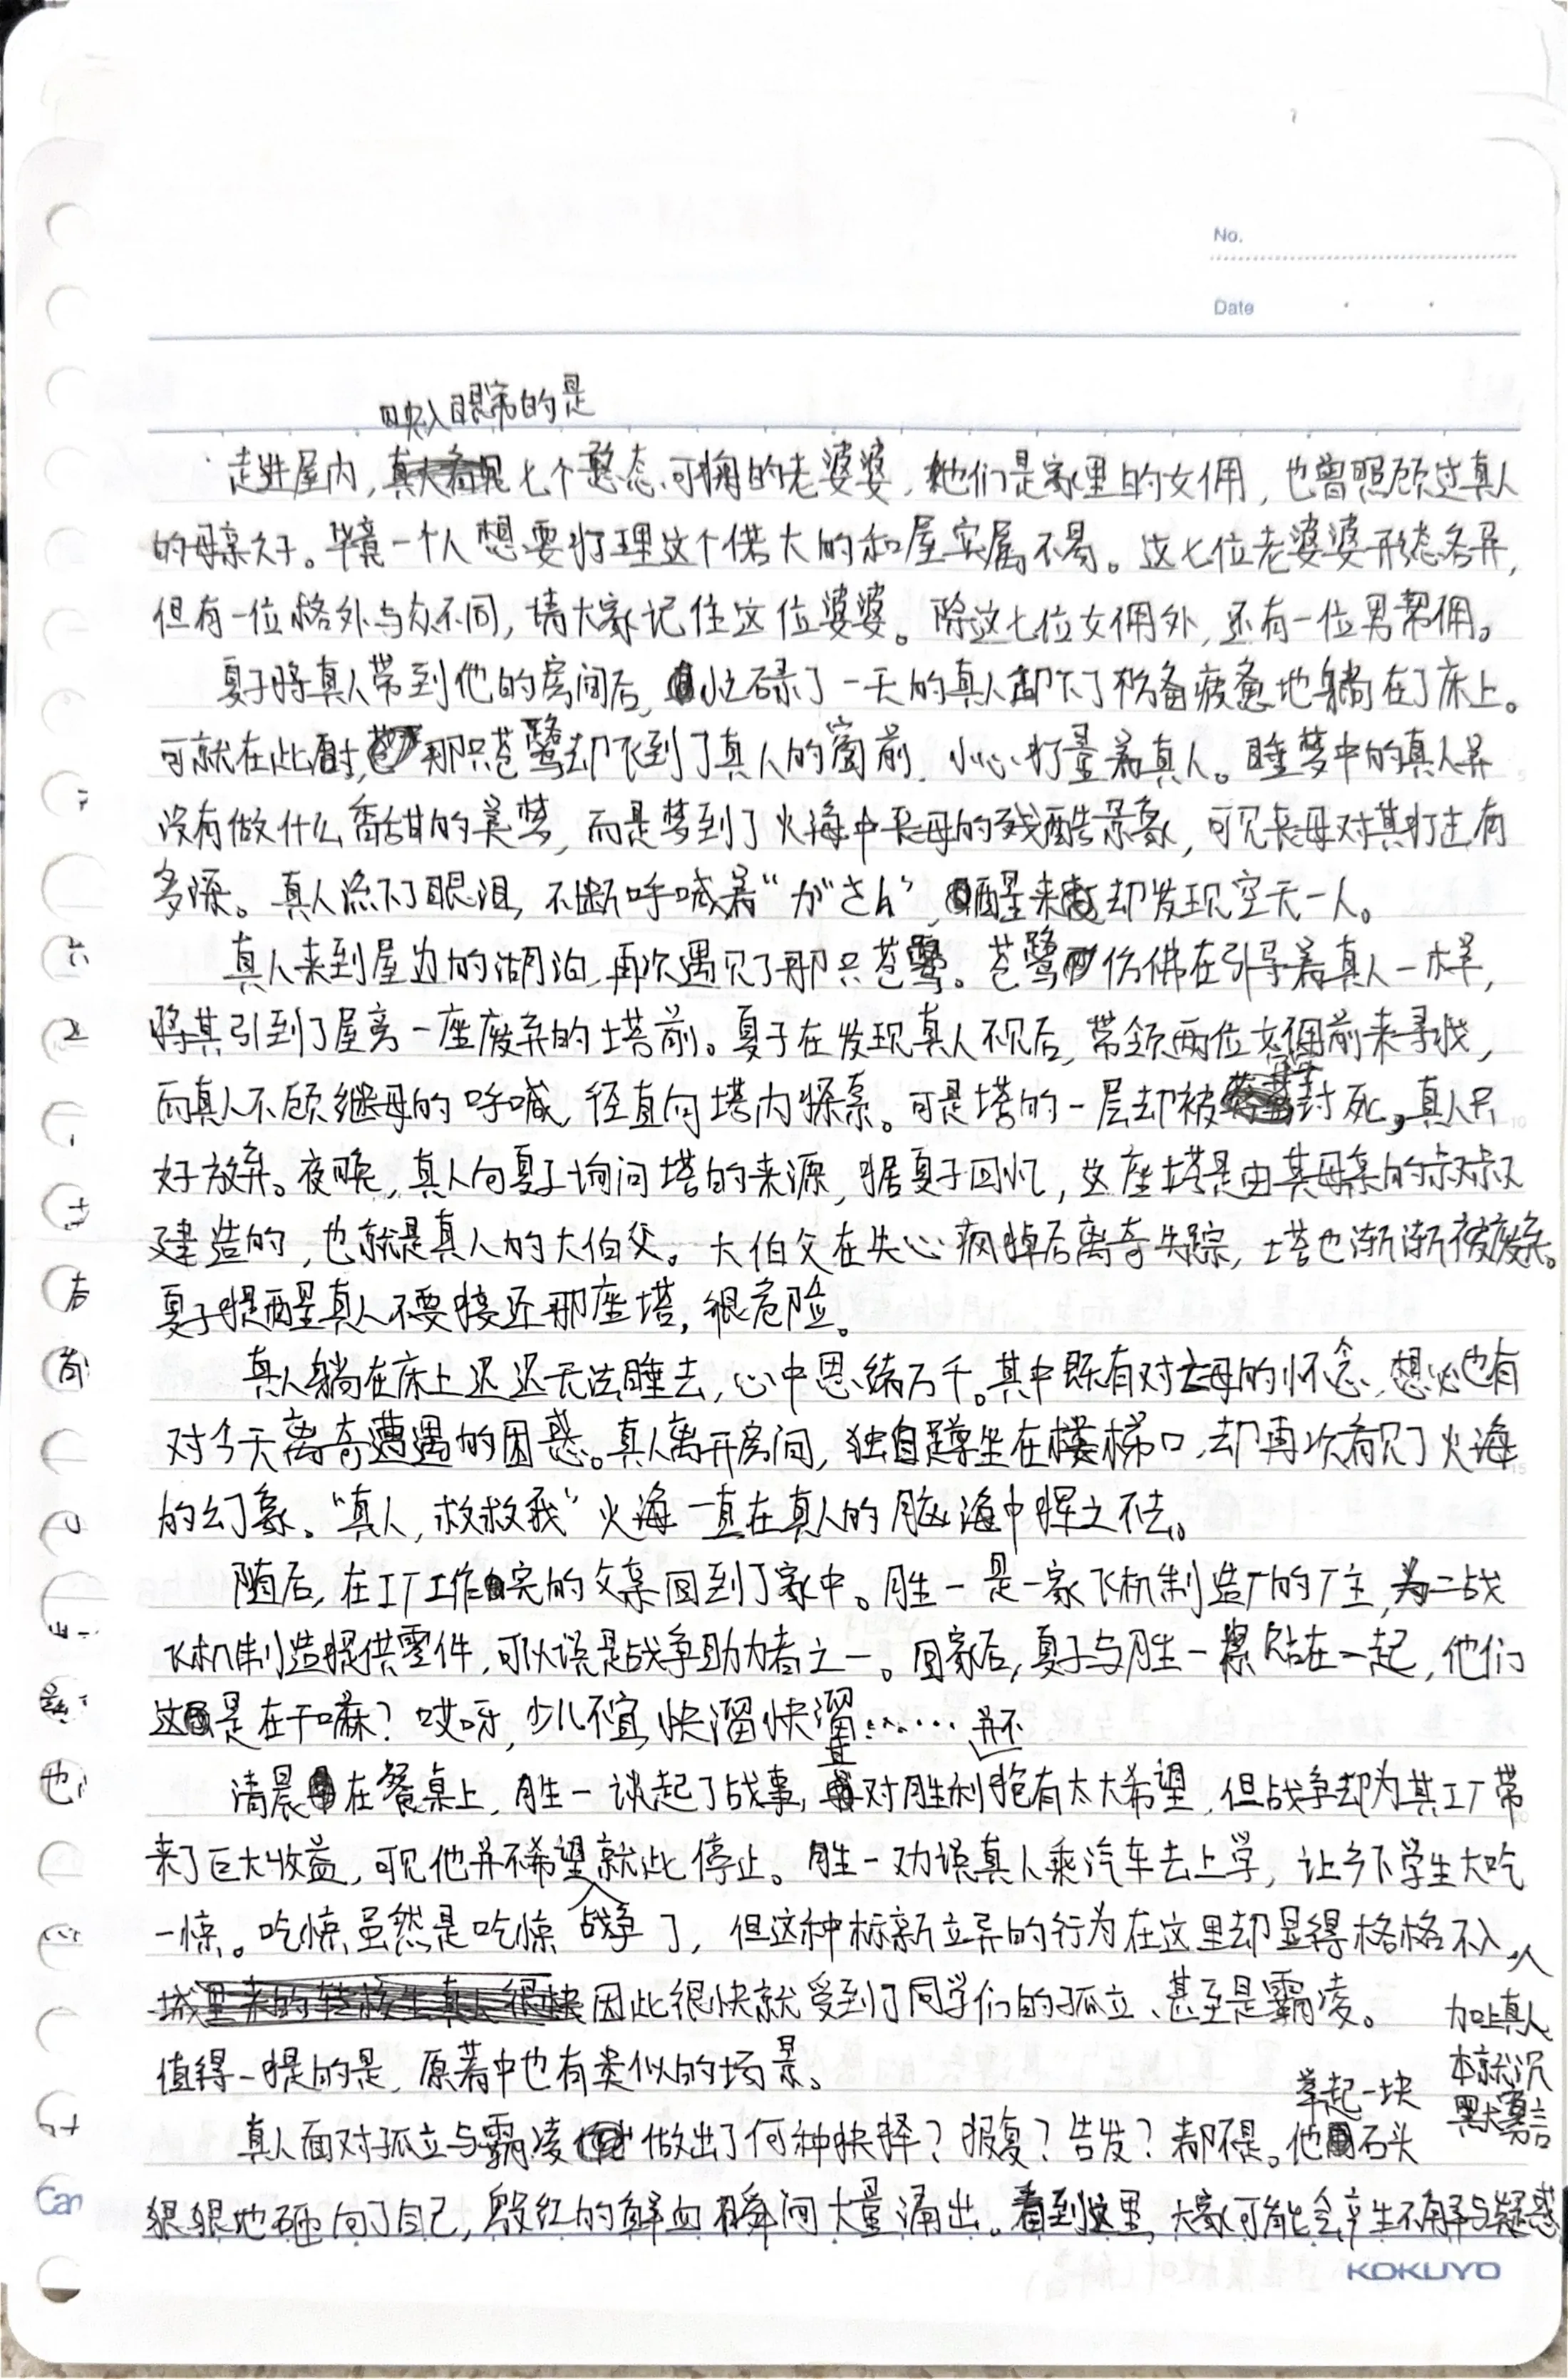 No.
Date
映入眼帘的是
走进屋内,七个憨态可掬的老婆婆,她们是家里的女佣,也曾照顾过真人
的母亲久子。毕竟一个人想要打理这个偌大的和屋实属不易。这七位老婆婆形态各异,
但有一位格外与众不同,请大家记住这位婆婆。除这七位女佣外,还有一位男帮佣。
夏子将真人带到他的房间后,忙碌了一天的真人卸下了防备疲惫地躺在了床上。
可就在此时,那只苍鹭却飞到了真人的窗前,小心打量着真人。睡梦中的真人并
没有做什么香甜的美梦,而是梦到了火海中丧母的残酷景象,可见丧母对其打击有
多深。真人流下了眼泪,不断呼喊着“がさん”,醒来却发现空无一人。
真人来到屋边的湖泊,再次遇见了那只苍鹭。苍鹭仿佛在引导着真人一样,
将其引到了屋旁一座废弃的塔前。夏子在发现真人不见后,带领两位女佣前来寻找,
而真人不顾继母的呼喊,径直向塔内探索。可是塔的一层却被封死,真人只
好放弃。夜晚,真人向夏子询问塔的来源,据夏子回忆,这座塔是由其母亲的叔叔
建造的,也就是真人的大伯父。大伯父在失心疯掉后离奇失踪,塔也渐渐被废弃。
夏子提醒真人不要接近那座塔,很危险。
真人躺在床上迟迟无法睡去,心中思绪万千。其中既有对亡母的怀念,想必也有
对今天离奇遭遇的困惑。真人离开房间,独自蹲坐在楼梯口,却再次看见了火海
的幻象。“真人,救救我”火海一直在真人的脑海中挥之不去。
随后,在工厂工作完的父亲回到了家中。胜一是一家飞机制造厂的厂主,为二战
飞机制造提供零件,可以说是战争助力者之一。回家后,夏子与胜一紧贴在一起,他们
这是在干嘛?哎呀,少儿不宜,快溜快溜……
并不
清晨在餐桌上,胜一谈起了战事,其对胜利抱有太大希望,但战争却为其工厂带
来了巨大收益,可见他并不希望战争就此停止。胜一劝误真人乘汽车去上学,让乡下学生大吃
一惊。吃惊虽然是吃惊了,但这种标新立异的行为在这里却显得格格不入,
加上真人
本就沉
默寡言
因此很快就受到了同学们的孤立、甚至是霸凌。
值得一提的是,原著中也有类似的场景。
举起一块
真人面对孤立与霸凌做出了何种抉择?报复?告发?都不是。他石头
狠狠地砸向了自己,殷红的鲜血瞬间大量涌出。看到这里,大家可能会产生不解与疑惑
KOKUYO